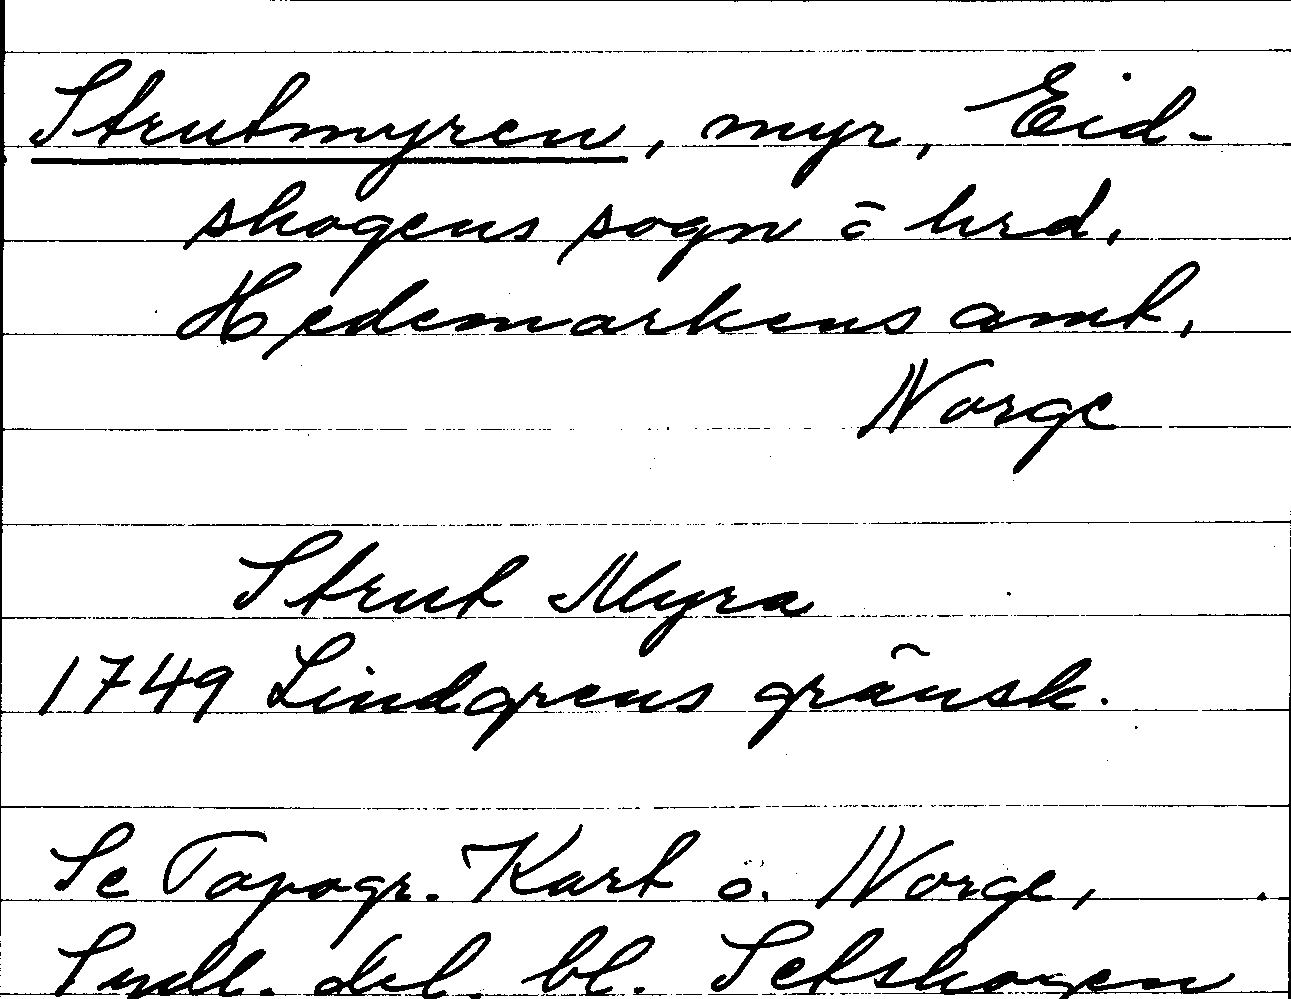 Strutmyren, myr, Eid-
skogens sogn o hrd,
Hedemarkens amt,
Norge
Strut Myra
1749 Lindgrens gränsk.
Se Topogr. Kart ö. Norge,
Sydl. del. bl. Setskogen